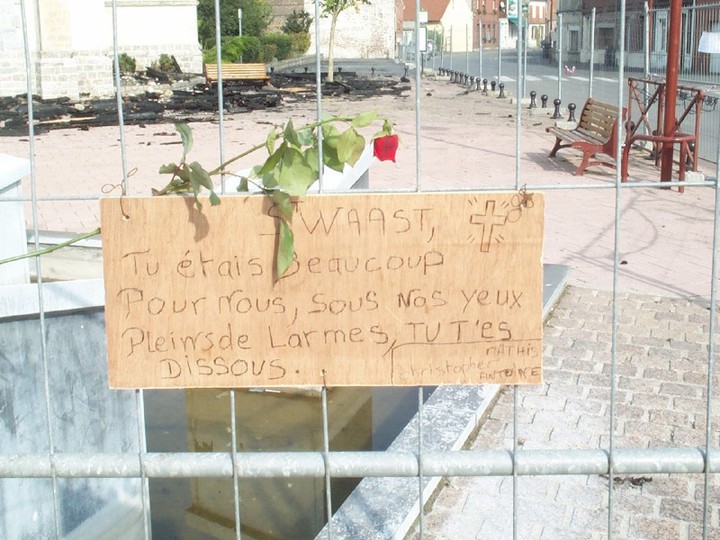 ST WAAST,
Tu étais Beaucoup
Pour Nous, sous Nos yeux
Pleins de Larmes, TU T'es
DISSOUS.
MATHIS
christopher
ANTOINE